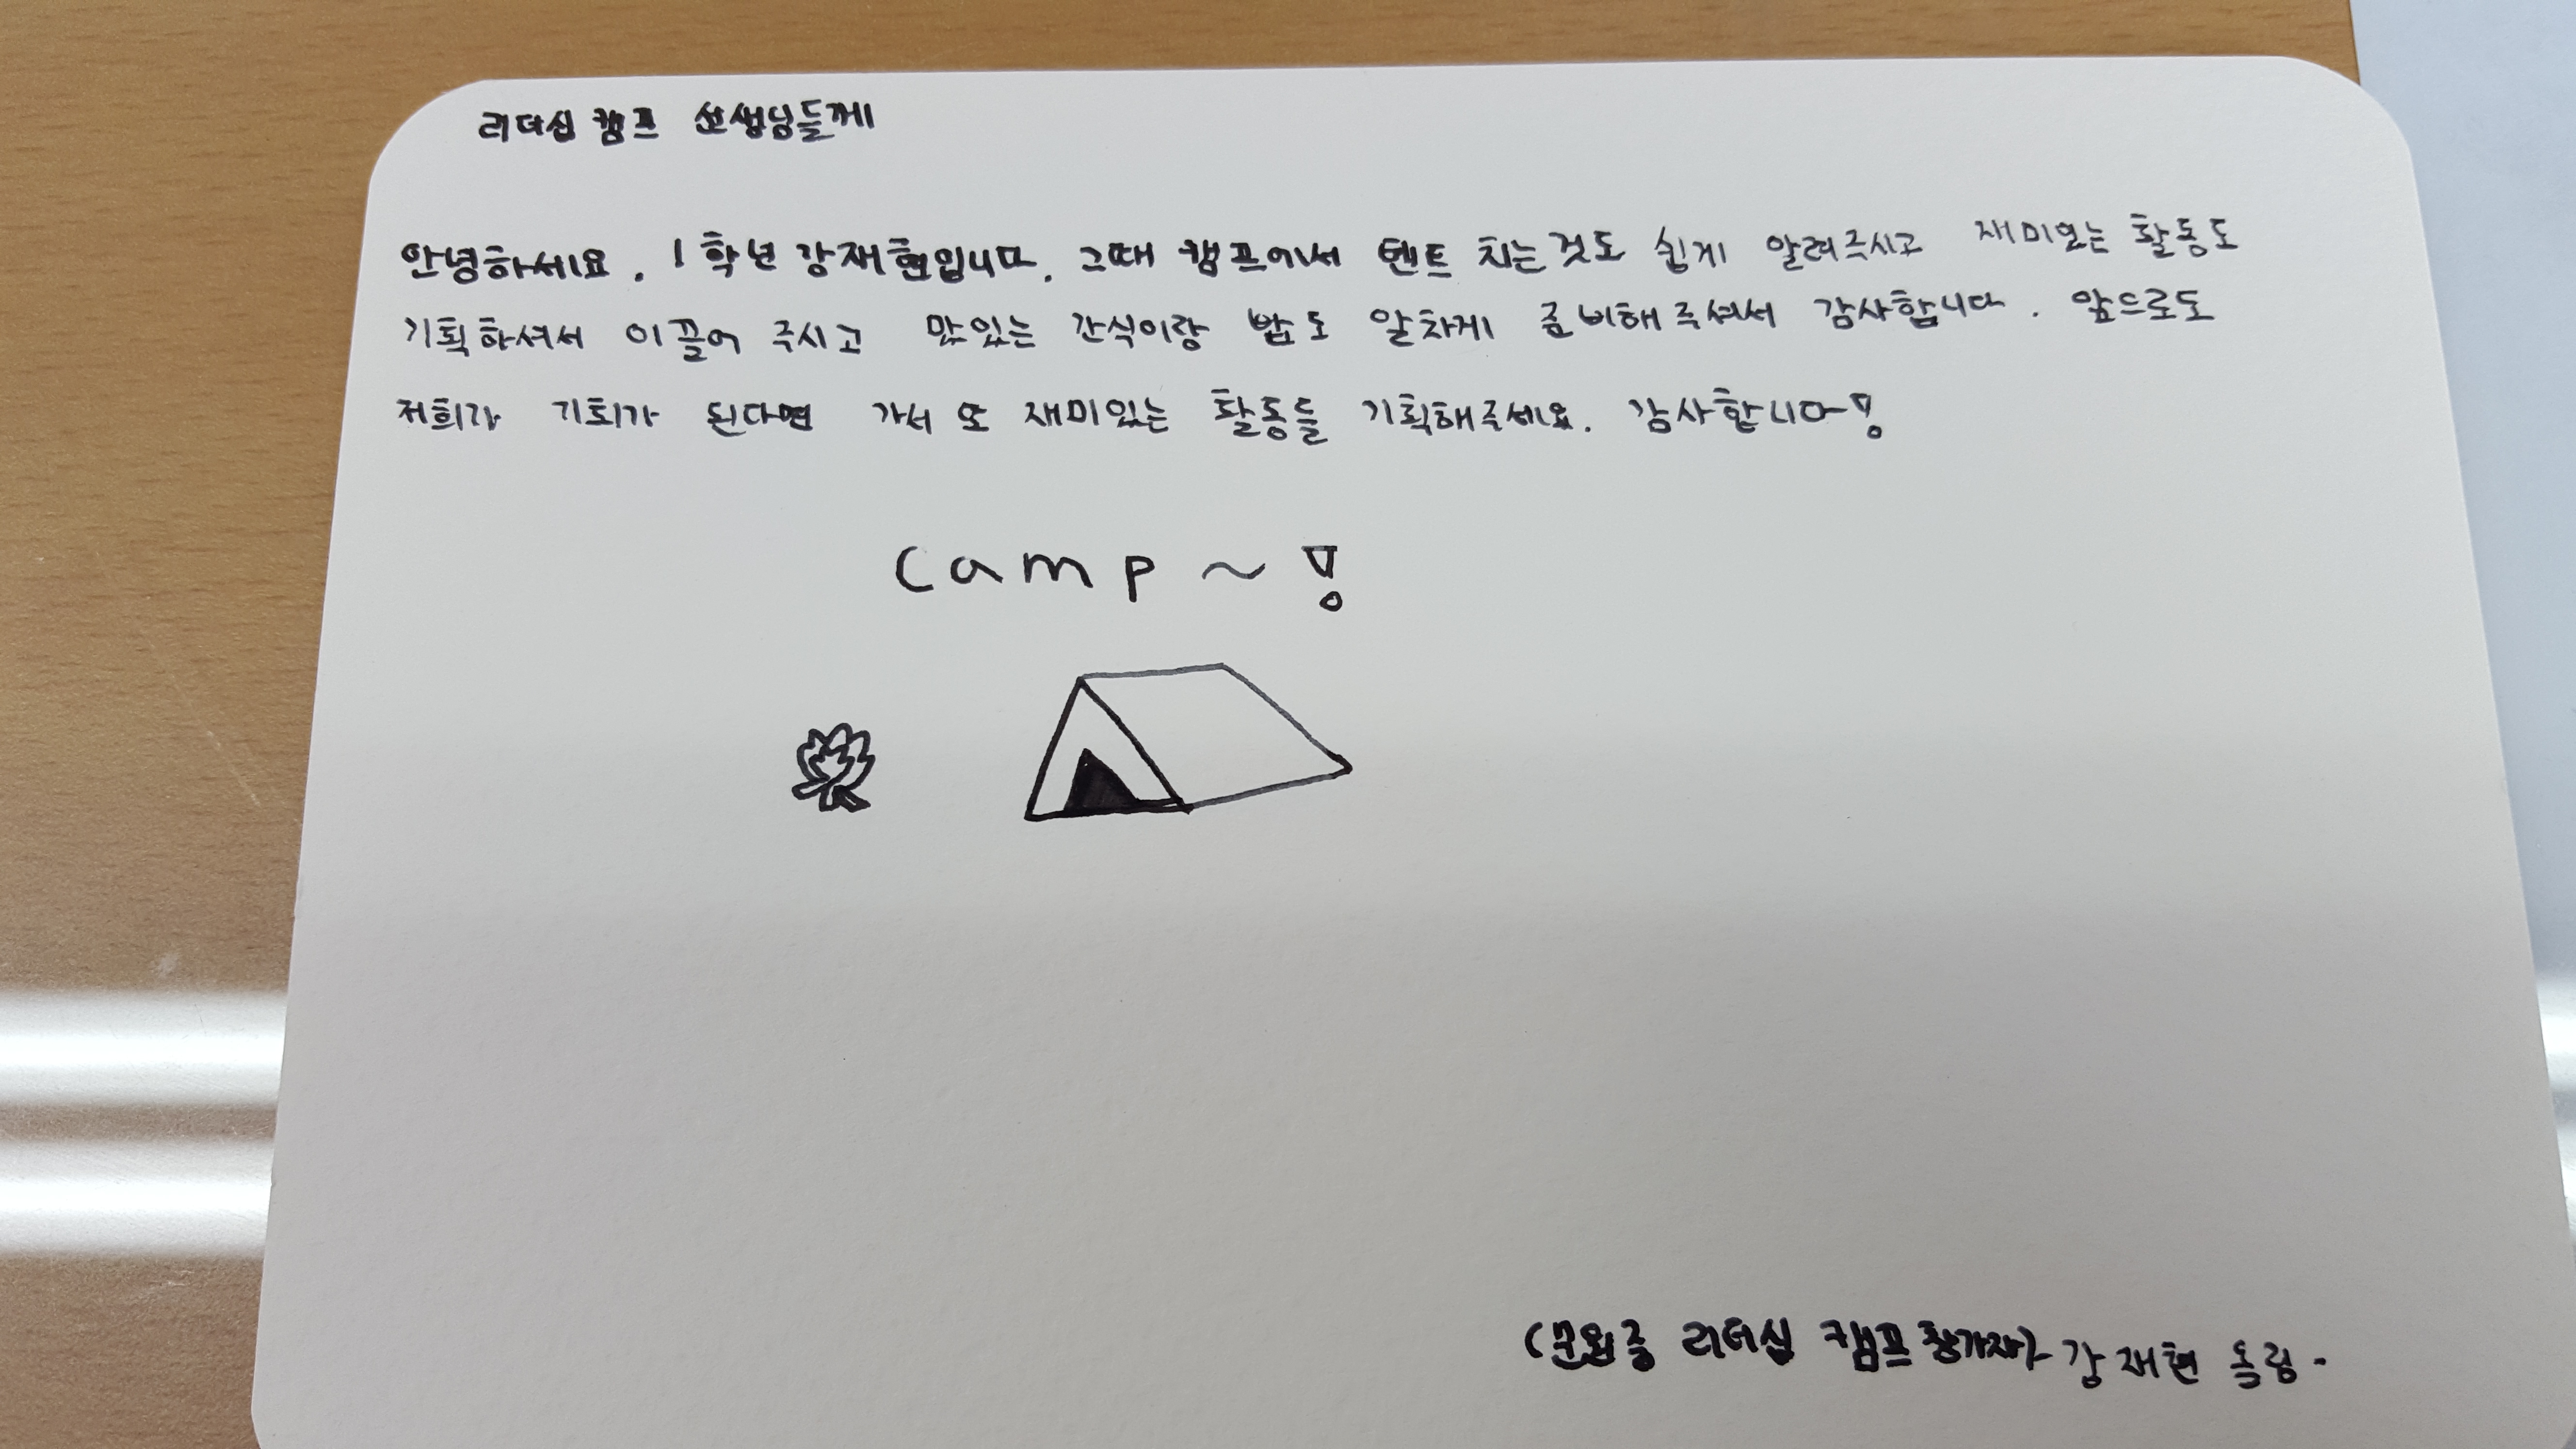 리더십 캠프 선생님들께
안녕하세요. 1학년 강재협입니다. 그때 캠프에서 텐트 치는것도 쉽게 알려주시고 재미있는 활동도
기획하셔서 이끌어 주시고 맛있는 간식이랑 밥도 알차게 준비해주셔서 감사합니다. 앞으로도
저희가 기회가 된다면 가서 또 재미있는 활동들 기획해주세요. 감사합니다!
Camp~!
리더십 캠프참가자) 강재협 올림.